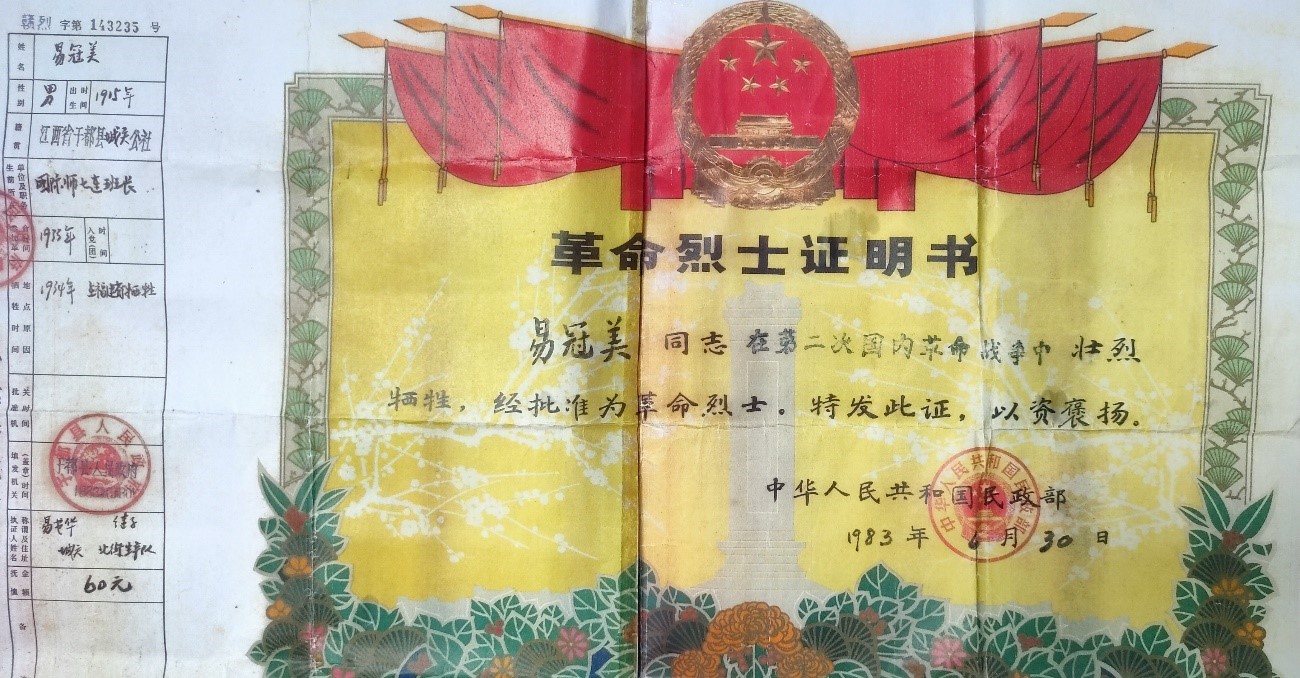 赣烈 字第 143235 号
姓名 易冠美
性别 男 出生时间 1915年
籍贯 江西省于都县城关公社
生前所 单位及职务 国际师七连班长
1933年 入党(团)时间
牺牲时间 地点原因 1934年 福建牺牲
批准机关时间
填发机关 (盖章)时间
执证人姓名 称谓及住址 易书华 侄子
城关
抚恤金额 60元
备
革命烈士证明书
易冠美 同志 在第二次国内革命战争中 壮烈
牺牲，经批准为革命烈士。特发此证，以资褒扬。
中华人民共和国民政部
1983 年 6 月 30 日